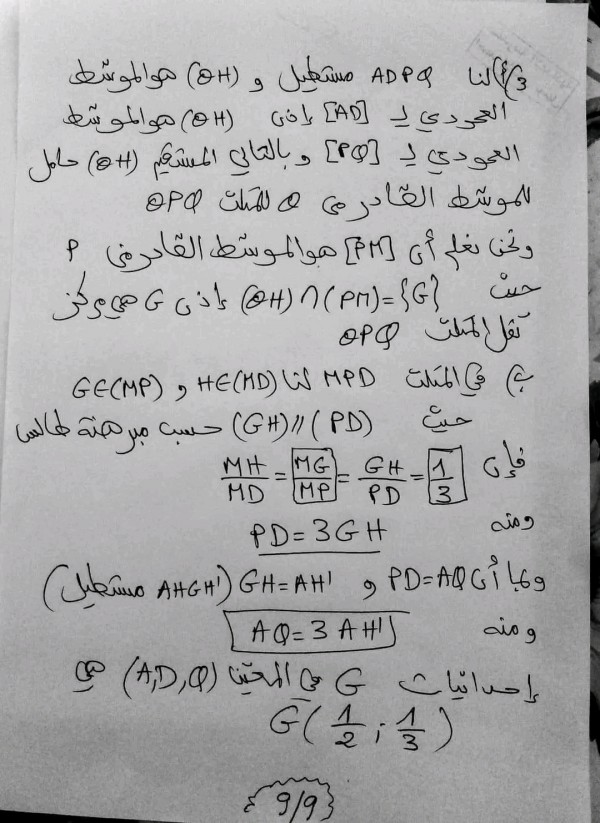 3/أ) لنا ADPQ مستطيل و (OH) هو الموسّط
العمودي لـ [AD] إذن (OH) هو الموسّط
العمودي لـ [PQ] وبالتالي المستقيم (OH) حامل
للموسّط الصادر من O للمثلث OPQ
ونحن نعلم أن [PM] هو الموسّط الصادر من P
حيث (OH)∩(PM)={G} إذن G هي مركز
ثقل المثلث OPQ
ب) في المثلث MPD لنا H∈(MD) و G∈(MP)
حيث (GH)//(PD) حسب مبرهنة طالس
فإن MH/MD = MG/MP = GH/PD = 1/3
ومنه PD=3GH
وبما أن PD=AQ و GH=AH' (AHGH' مستطيل)
ومنه AQ=3AH'
إحداثيات G في المعيّن (A,D,Q) هي
G(1/2 ; 1/3)
9/9